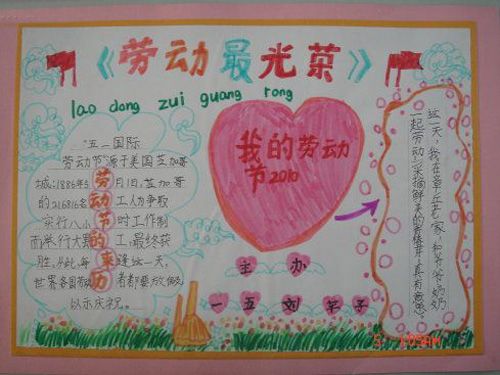 《劳动最光荣》
lao dong zui guang rong
"五一国际
劳动节"源于美国芝加哥
城,1886年5月1日,芝加哥
的216816名工人为争取
实行八小时工作制
而举行大罢工,最终获
胜,从此,每逢这一天,
世界各国劳动者都要放假,
以示庆祝。
劳动节的来历
我的劳动
节2010
主办
一五刘宇子
这一天,我在章丘老家,和爷爷奶奶
一起劳动,采摘鲜美的香椿芽,真有意思。